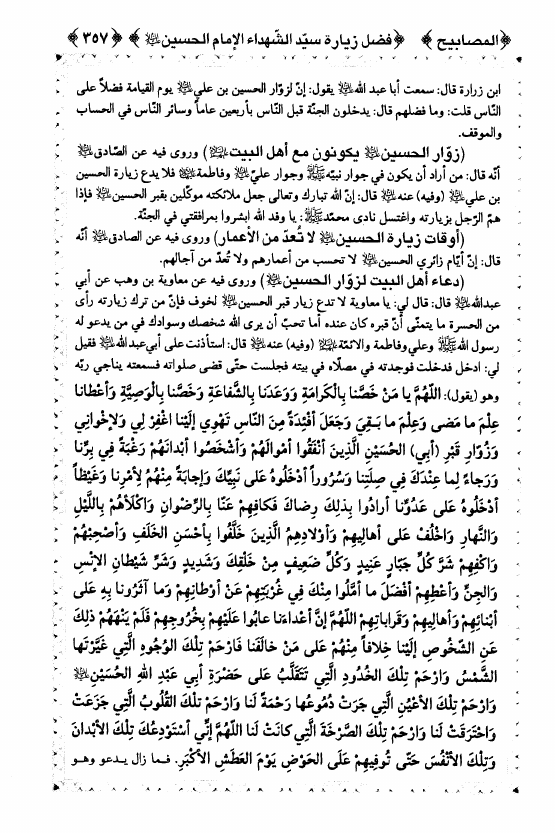 ﴿المصابيح﴾ ﴿فضل زيارة سيّد الشّهداء الإمام الحسين ﵇﴾ ﴿٣٥٧﴾
ابن زرارة قال: سمعت أبا عبد الله ﵇ يقول: إنّ لزوّار الحسين بن علي ﵇ يوم القيامة فضلاً على
النّاس قلت: وما فضلهم قال: يدخلون الجنّة قبل النّاس بأربعين عاماً وسائر النّاس في الحساب
والموقف.
(زوّار الحسين ﵇ يكونون مع أهل البيت ﵈) وروى فيه عن الصّادق ﵇
أنّه قال: من أراد أن يكون في جوار نبيّه ﷺ وجوار عليّ ﵇ وفاطمة ﵍ فلا يدع زيارة الحسين
بن علي ﵇ (وفيه) عنه ﵇ قال: إنّ الله تبارك وتعالى جعل ملائكته موكّلين بقبر الحسين ﵇ فإذا
همّ الرّجل بزيارته واغتسل نادى محمّد ﷺ: يا وفد الله ابشروا بمرافقتي في الجنّة.
(أوقات زيارة الحسين ﵇ لا تُعدّ من الأعمار) وروى فيه عن الصادق ﵇ أنّه
قال: إنّ أيّام زائري الحسين ﵇ لا تحسب من أعمارهم ولا تُعدّ من آجالهم.
(دعاء أهل البيت لزوّار الحسين ﵇) وروى فيه عن معاوية بن وهب عن أبي
عبدالله ﵇ قال: قال لي: يا معاوية لا تدع زيار قبر الحسين ﵇ لخوف فإنّ من ترك زيارته رأى
من الحسرة ما يتمنّى أنّ قبره كان عنده أما تحبّ أن يرى الله شخصك وسوادك في من يدعو له
رسول الله ﷺ وعلي وفاطمة والائمّة ﵈ (وفيه) عنه ﵇ قال: استأذنت على أبي عبدالله ﵇ فقيل
لي: ادخل فدخلت فوجدته في مصلّاه في بيته فجلست حتّى قضى صلواته فسمعته يناجي ربّه
وهو (يقول): اللّهُمَّ يا مَنْ خَصَّنا بِالْكَرامَةِ وَوَعَدَنا بِالشَّفاعَةِ وَخَصَّنا بِالْوَصِيَّةِ وَأَعْطانا
عِلْمَ ما مَضى وَعِلْمَ ما بَقِيَ وَجَعَلَ أفْئِدَةً مِنَ النّاسِ تَهْوِي إِلَيْنا اغْفِرْ لِي وَلِإخْوانِي
وَزُوّارِ قَبْرِ (أبي) الحُسَيْنِ الَّذِينَ أنْفَقُوا أمْوالَهُمْ وَأشْخَصُوا أبْدانَهُمْ رَغْبَةً فِي بِرِّنا
وَرَجاءً لِما عِنْدَكَ فِي صِلَتِنا وَسُرُوراً أدْخَلُوهُ عَلى نَبِيِّكَ وَإجابَةً مِنْهُمْ لِأمْرِنا وَغَيْظاً
أدْخَلُوهُ عَلى عَدُوِّنا أرادُوا بِذلِكَ رِضاكَ فَكافِهِمْ عَنّا بِالرِّضْوانِ وَاكْلَأْهُمْ بِاللَّيْلِ
وَالنَّهارِ وَاخْلُفْ عَلى أهالِيهِمْ وَأوْلادِهِمُ الَّذِينَ خَلَّفُوا بِأحْسَنِ الخَلَفِ وَأصْحِبْهُمْ
وَاكْفِهِمْ شَرَّ كُلِّ جَبّارٍ عَنِيدٍ وَكُلِّ ضَعِيفٍ مِنْ خَلْقِكَ وَشَدِيدٍ وَشَرِّ شَيْطانِ الإنْسِ
وَالجِنِّ وَأعْطِهِمْ أفْضَلَ ما أمَّلُوا مِنْكَ فِي غُرْبَتِهِمْ عَنْ أوْطانِهِمْ وَما آثَرُونا بِهِ عَلى
أبْنائِهِمْ وَأهالِيهِمْ وَقَراباتِهِمْ اللّهُمَّ إنَّ أعْداءَنا عابُوا عَلَيْهِمْ بِخُرُوجِهِمْ فَلَمْ يَنْهَهُمْ ذلِكَ
عَنِ الشُّخُوصِ إلَيْنا خِلافاً مِنْهُمْ عَلى مَنْ خالَفَنا فَارْحَمْ تِلْكَ الوُجُوهِ الَّتِي غَيَّرَتْها
الشَّمْسُ وَارْحَمْ تِلْكَ الخُدُودِ الَّتِي تَتَقَلَّبُ عَلى حَضْرَةِ أبِي عَبْدِ اللهِ الحُسَيْنِ ﵇
وَارْحَمْ تِلْكَ الأعْيُنِ الَّتِي جَرَتْ دُمُوعُها رَحْمَةً لَنا وَارْحَمْ تِلْكَ القُلُوبُ الَّتِي جَزَعَتْ
وَاحْتَرَقَتْ لَنا وَارْحَمْ تِلْكَ الصَّرْخَةَ الَّتِي كانَتْ لَنا اللّهُمَّ إنِّي أسْتَوْدِعُكَ تِلْكَ الأبْدانَ
وَتِلْكَ الأنْفُسَ حَتّى تُوفِيهِمْ عَلَى الحَوْضِ يَوْمَ العَطَشِ الأكْبَرِ. فـما زال يـدعو وهـو